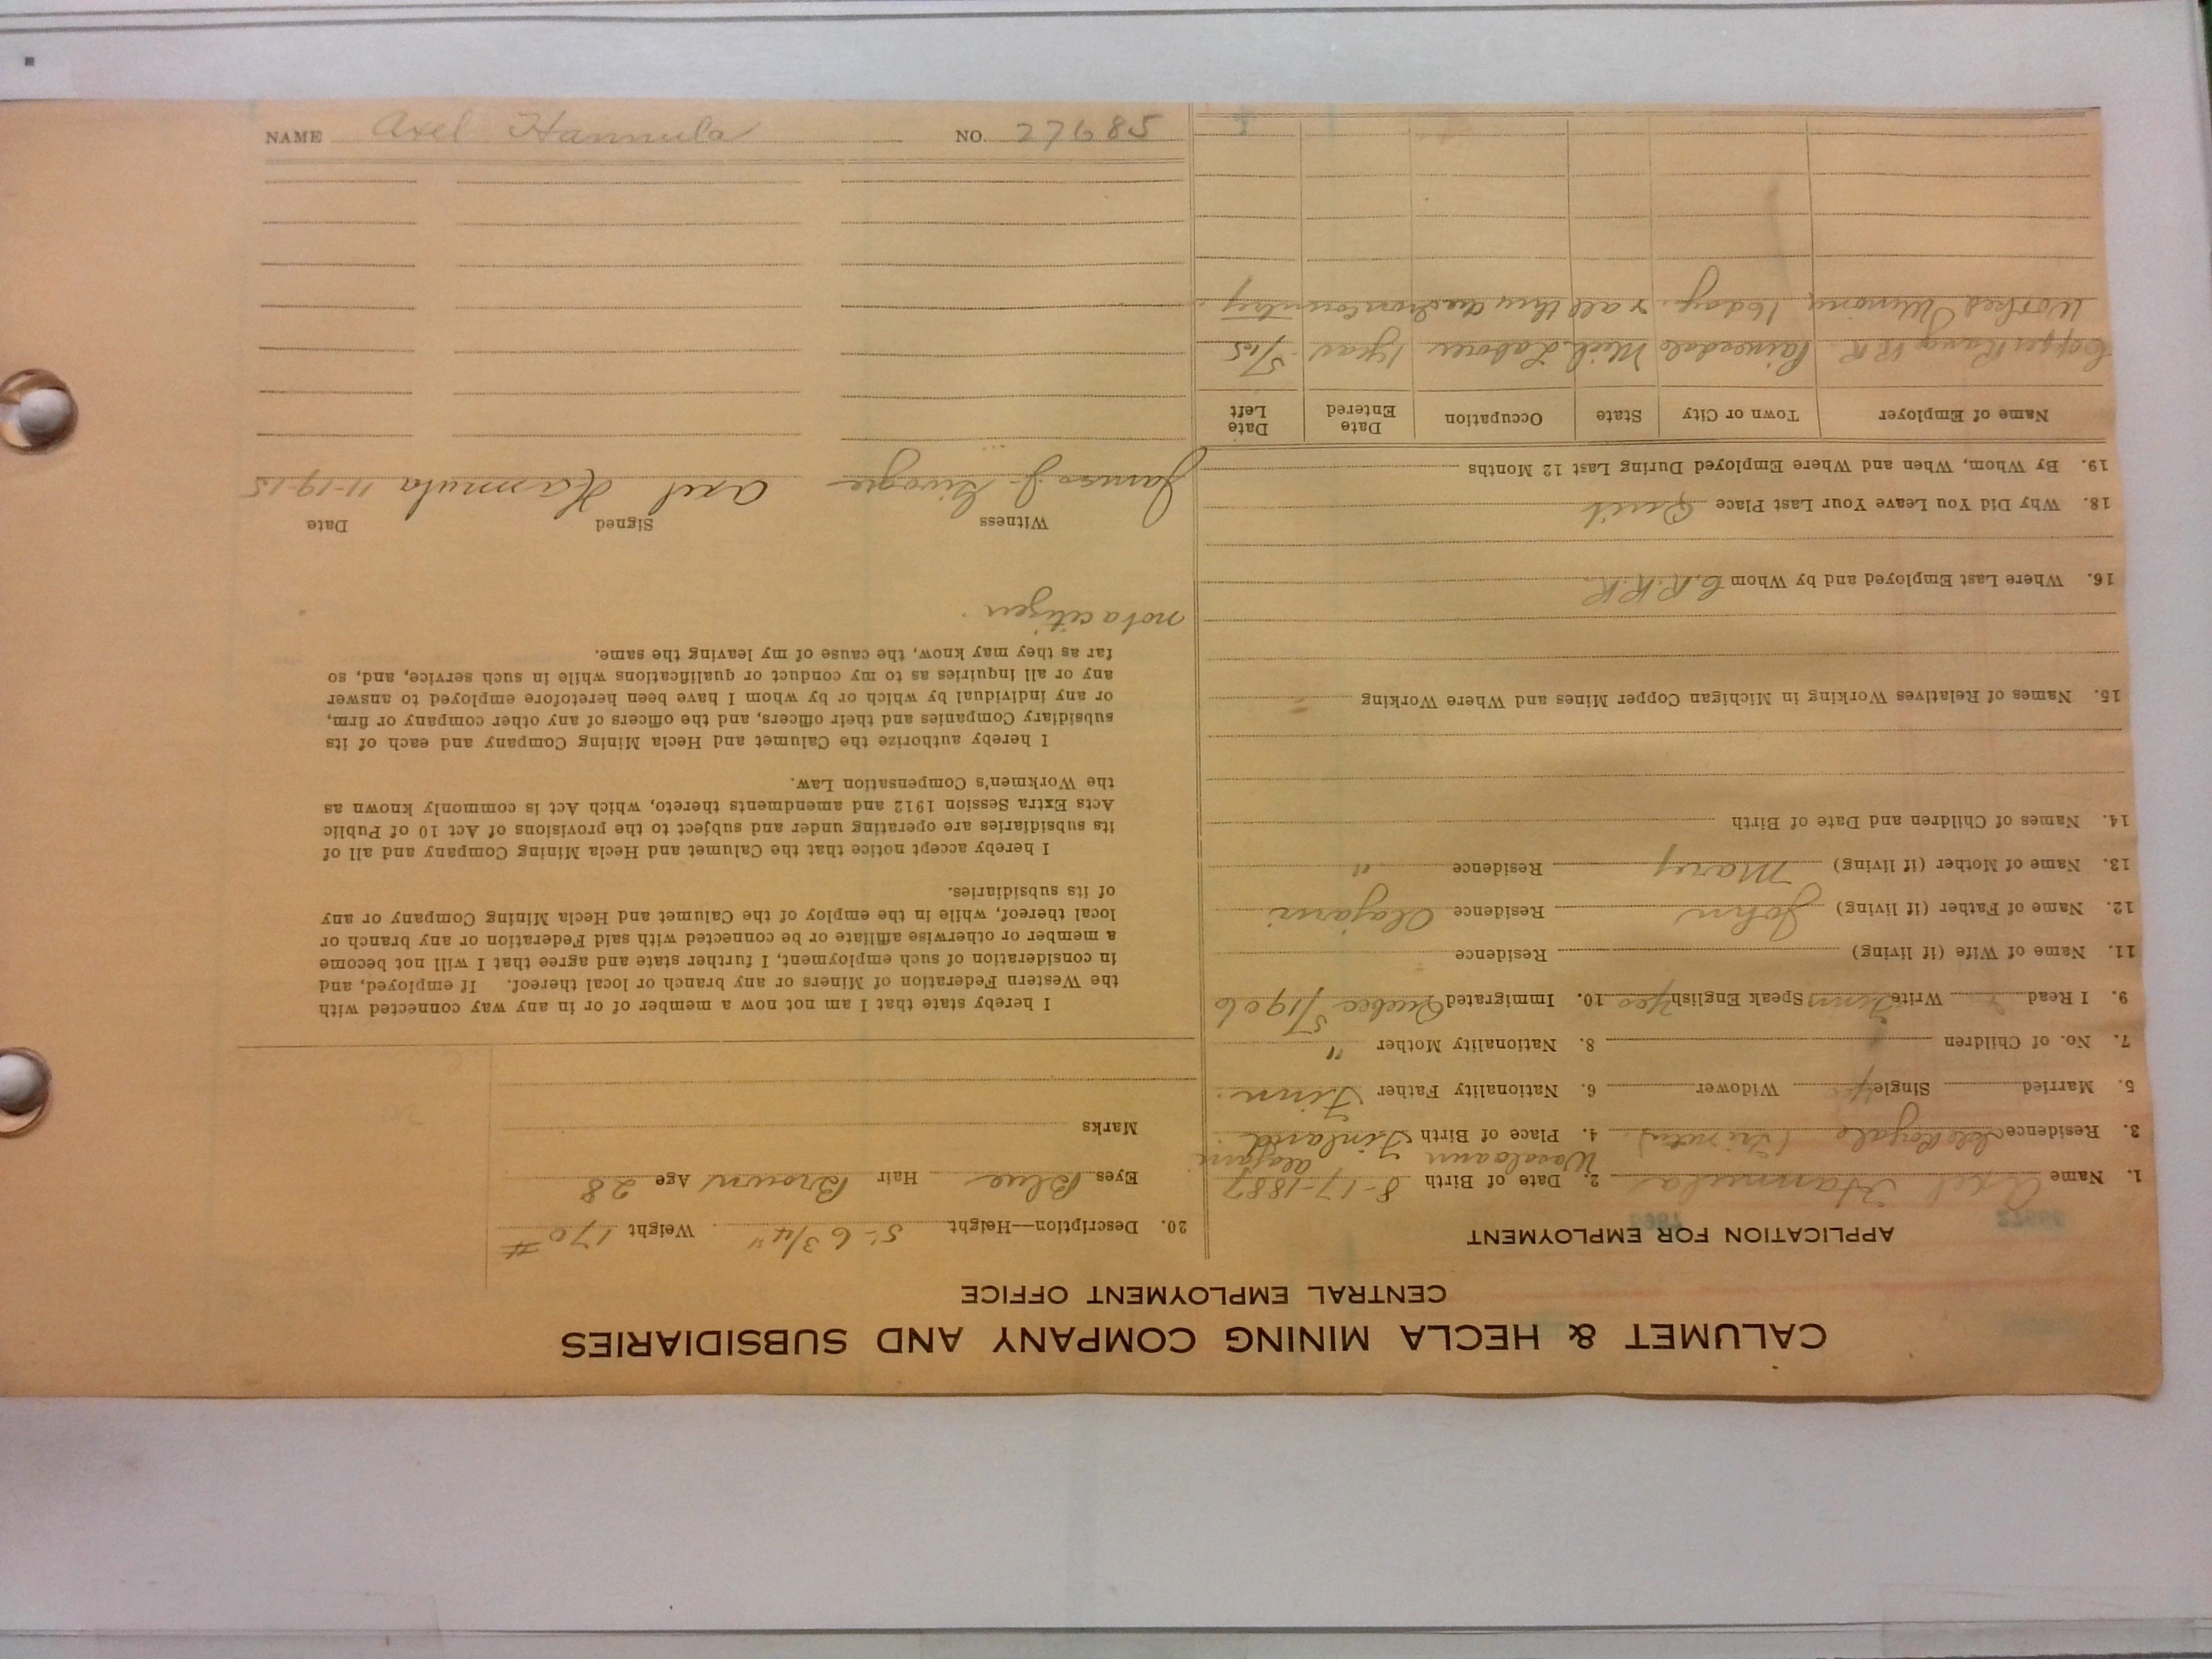 CALUMET & HECLA MINING COMPANY AND SUBSIDIARIES
CENTRAL EMPLOYMENT OFFICE
APPLICATION FOR EMPLOYMENT
1. Name Axel Hannula 2. Date of Birth 8-17-1887
3. Residence Isle Royale 4. Place of Birth Finland
5. Married Single Yes Widower 6. Nationality Father Finn
7. No. of Children 8. Nationality Mother "
9. I Read Write Finn Speak English Yes 10. Immigrated Quebec 5/1906
11. Name of Wife (if living) Residence
12. Name of Father (if living) John Residence Alajarvi
13. Name of Mother (if living) Mary Residence "
14. Names of Children and Date of Birth
15. Names of Relatives Working in Michigan Copper Mines and Where Working
16. Where Last Employed and by Whom C.R.R.R.
18. Why Did You Leave Your Last Place Quit
19. By Whom, When and Where Employed During Last 12 Months
Name of Employer Town or City State Occupation Date Entered Date Left
Copper Range RR Painesdale Mich Laborer 1 year 5/15
Worked Winona 16 days & all thru the iron country.
20. Description—Height 5'-6 3/4" Weight 170 #
Eyes Blue Hair Brown Age 28
Marks
I hereby state that I am not now a member of or in any way connected with
the Western Federation of Miners or any branch or local thereof. If employed, and
in consideration of such employment, I further state and agree that I will not become
a member or otherwise affiliate or be connected with said Federation or any branch or
local thereof, while in the employ of the Calumet and Hecla Mining Company or any
of its subsidiaries.
I hereby accept notice that the Calumet and Hecla Mining Company and all of
its subsidiaries are operating under and subject to the provisions of Act 10 of Public
Acts Extra Session 1912 and amendments thereto, which Act is commonly known as
the Workmen's Compensation Law.
I hereby authorize the Calumet and Hecla Mining Company and each of its
subsidiary Companies and their officers, and the officers of any other company or firm,
or any individual by which or by whom I have been heretofore employed to answer
any or all inquiries as to my conduct or qualifications while in such service, and, so
far as they may know, the cause of my leaving the same.
not a citizen
Witness Signed Date
James J. Axel Hannula 11-19-15
NAME Axel Hannula NO. 27685